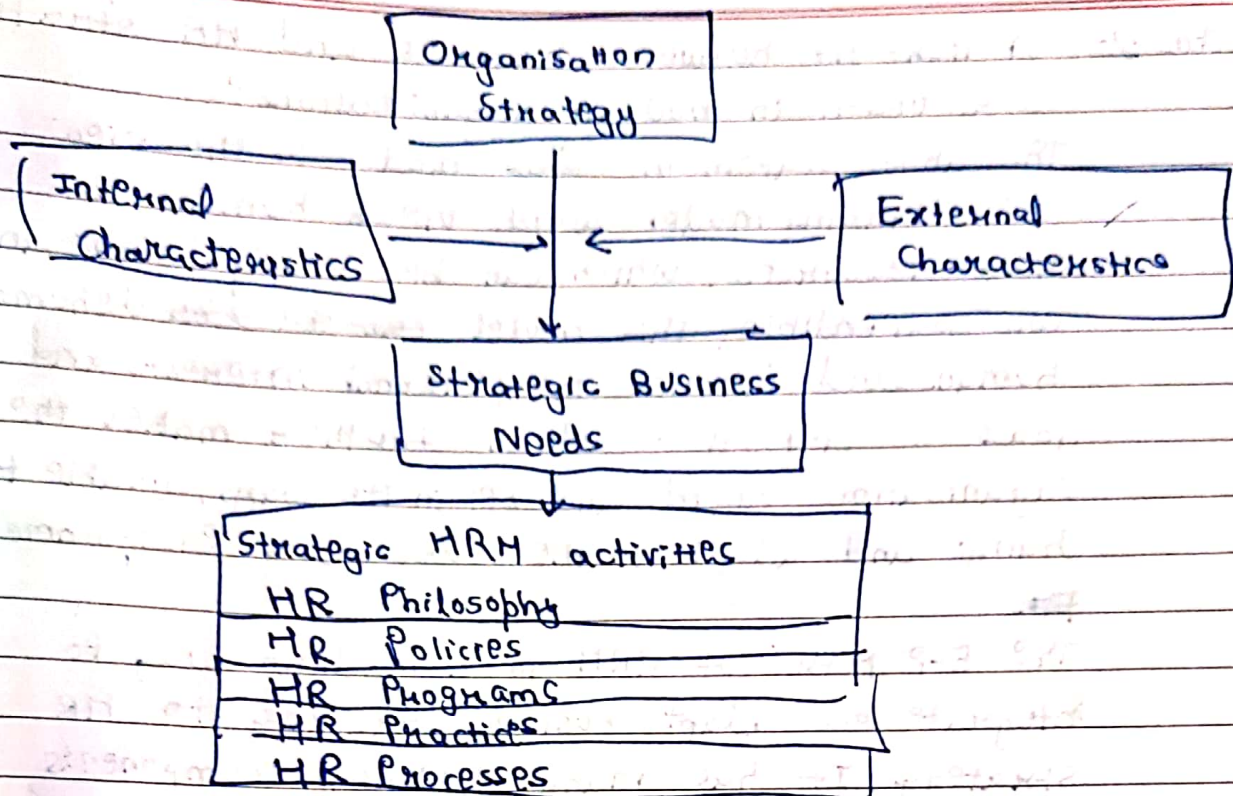 Organisation
Strategy
Internal
Characteristics
External
Characteristics
Strategic Business
Needs
Strategic HRM activities
HR Philosophy
HR Policies
HR Programs
HR Practices
HR Processes